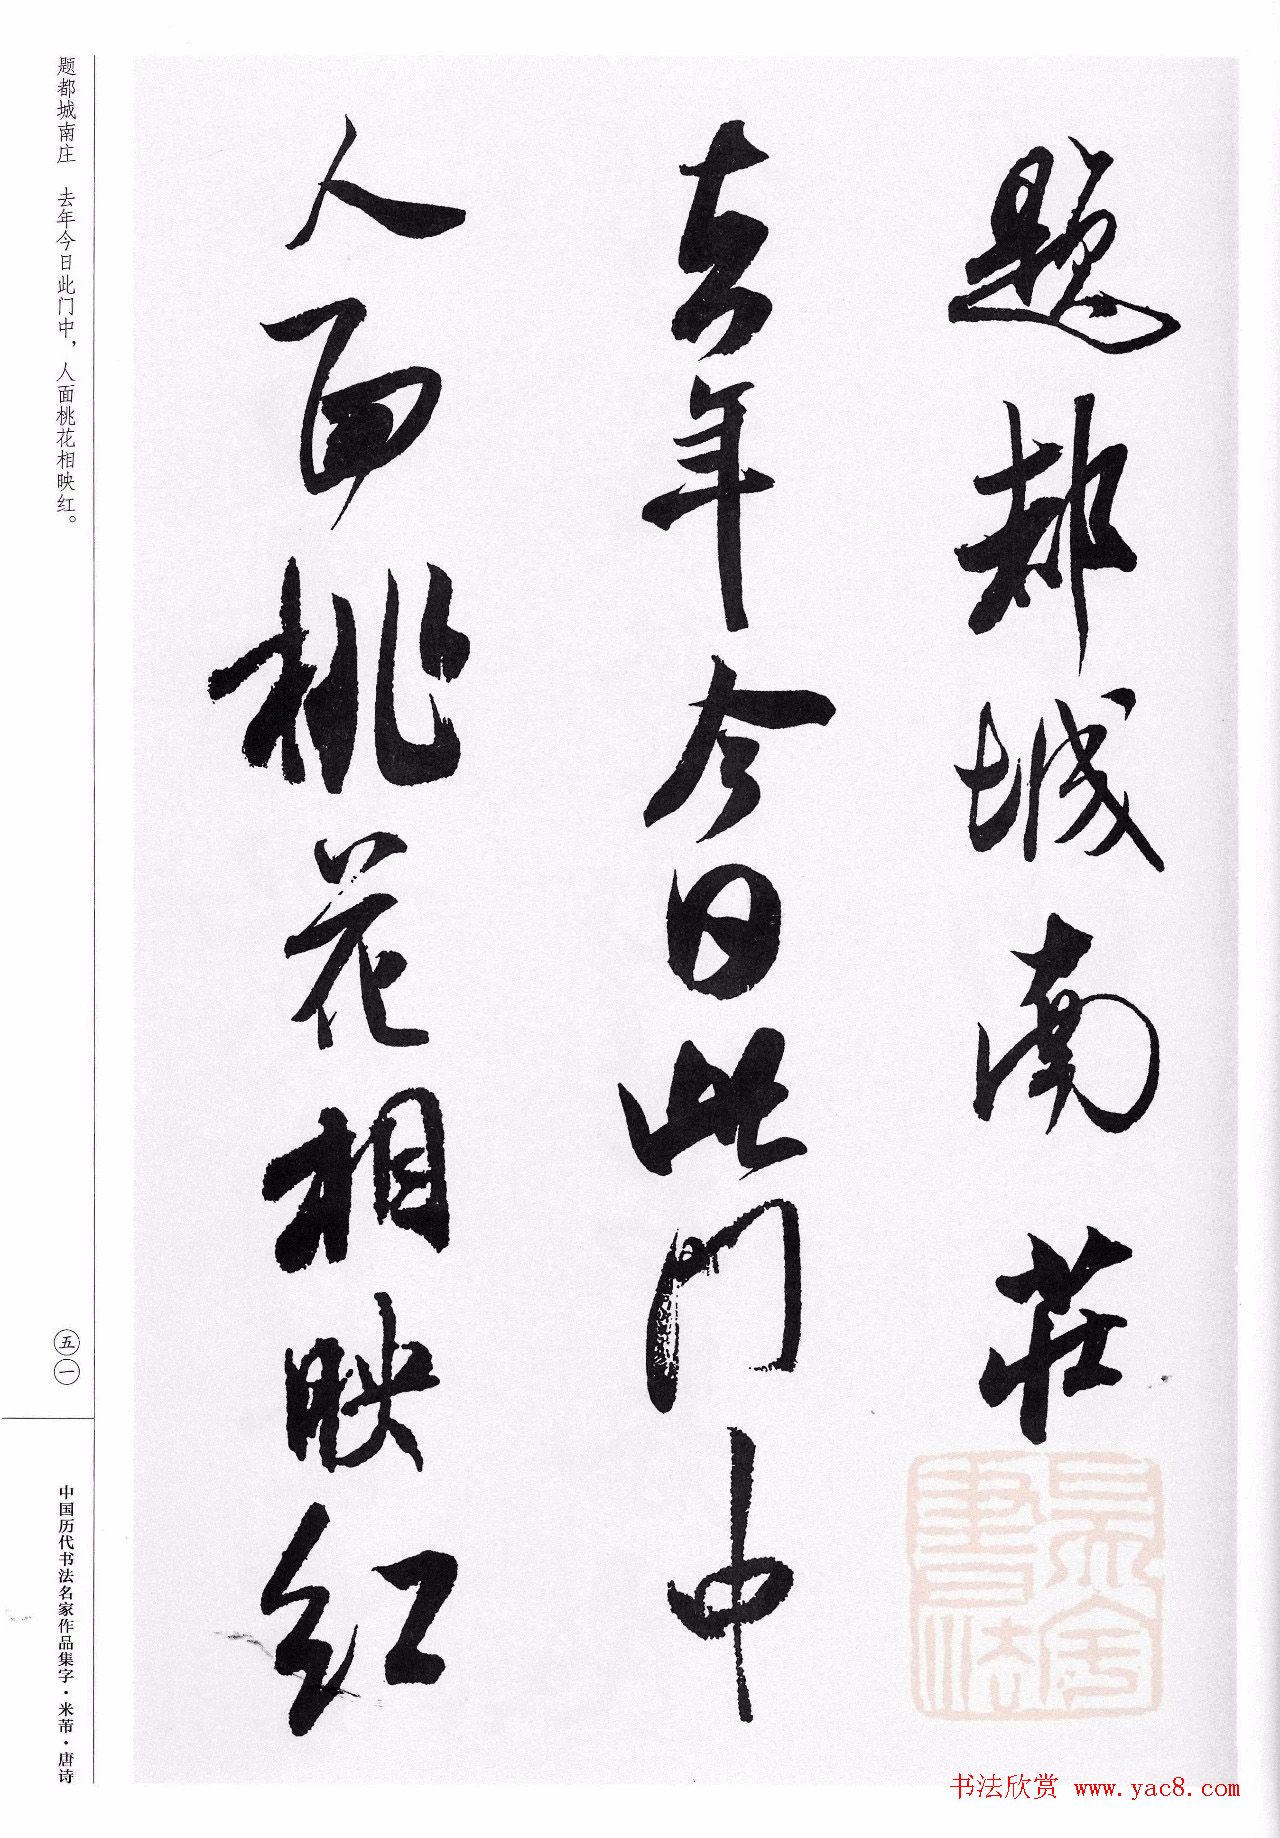 题都城南莊
去年今日此门中
人面桃花相映红
题都城南庄　去年今日此门中，人面桃花相映红。
五一
中国历代书法名家作品集字·米芾·唐诗
書法
书法欣赏 www.yac8.com